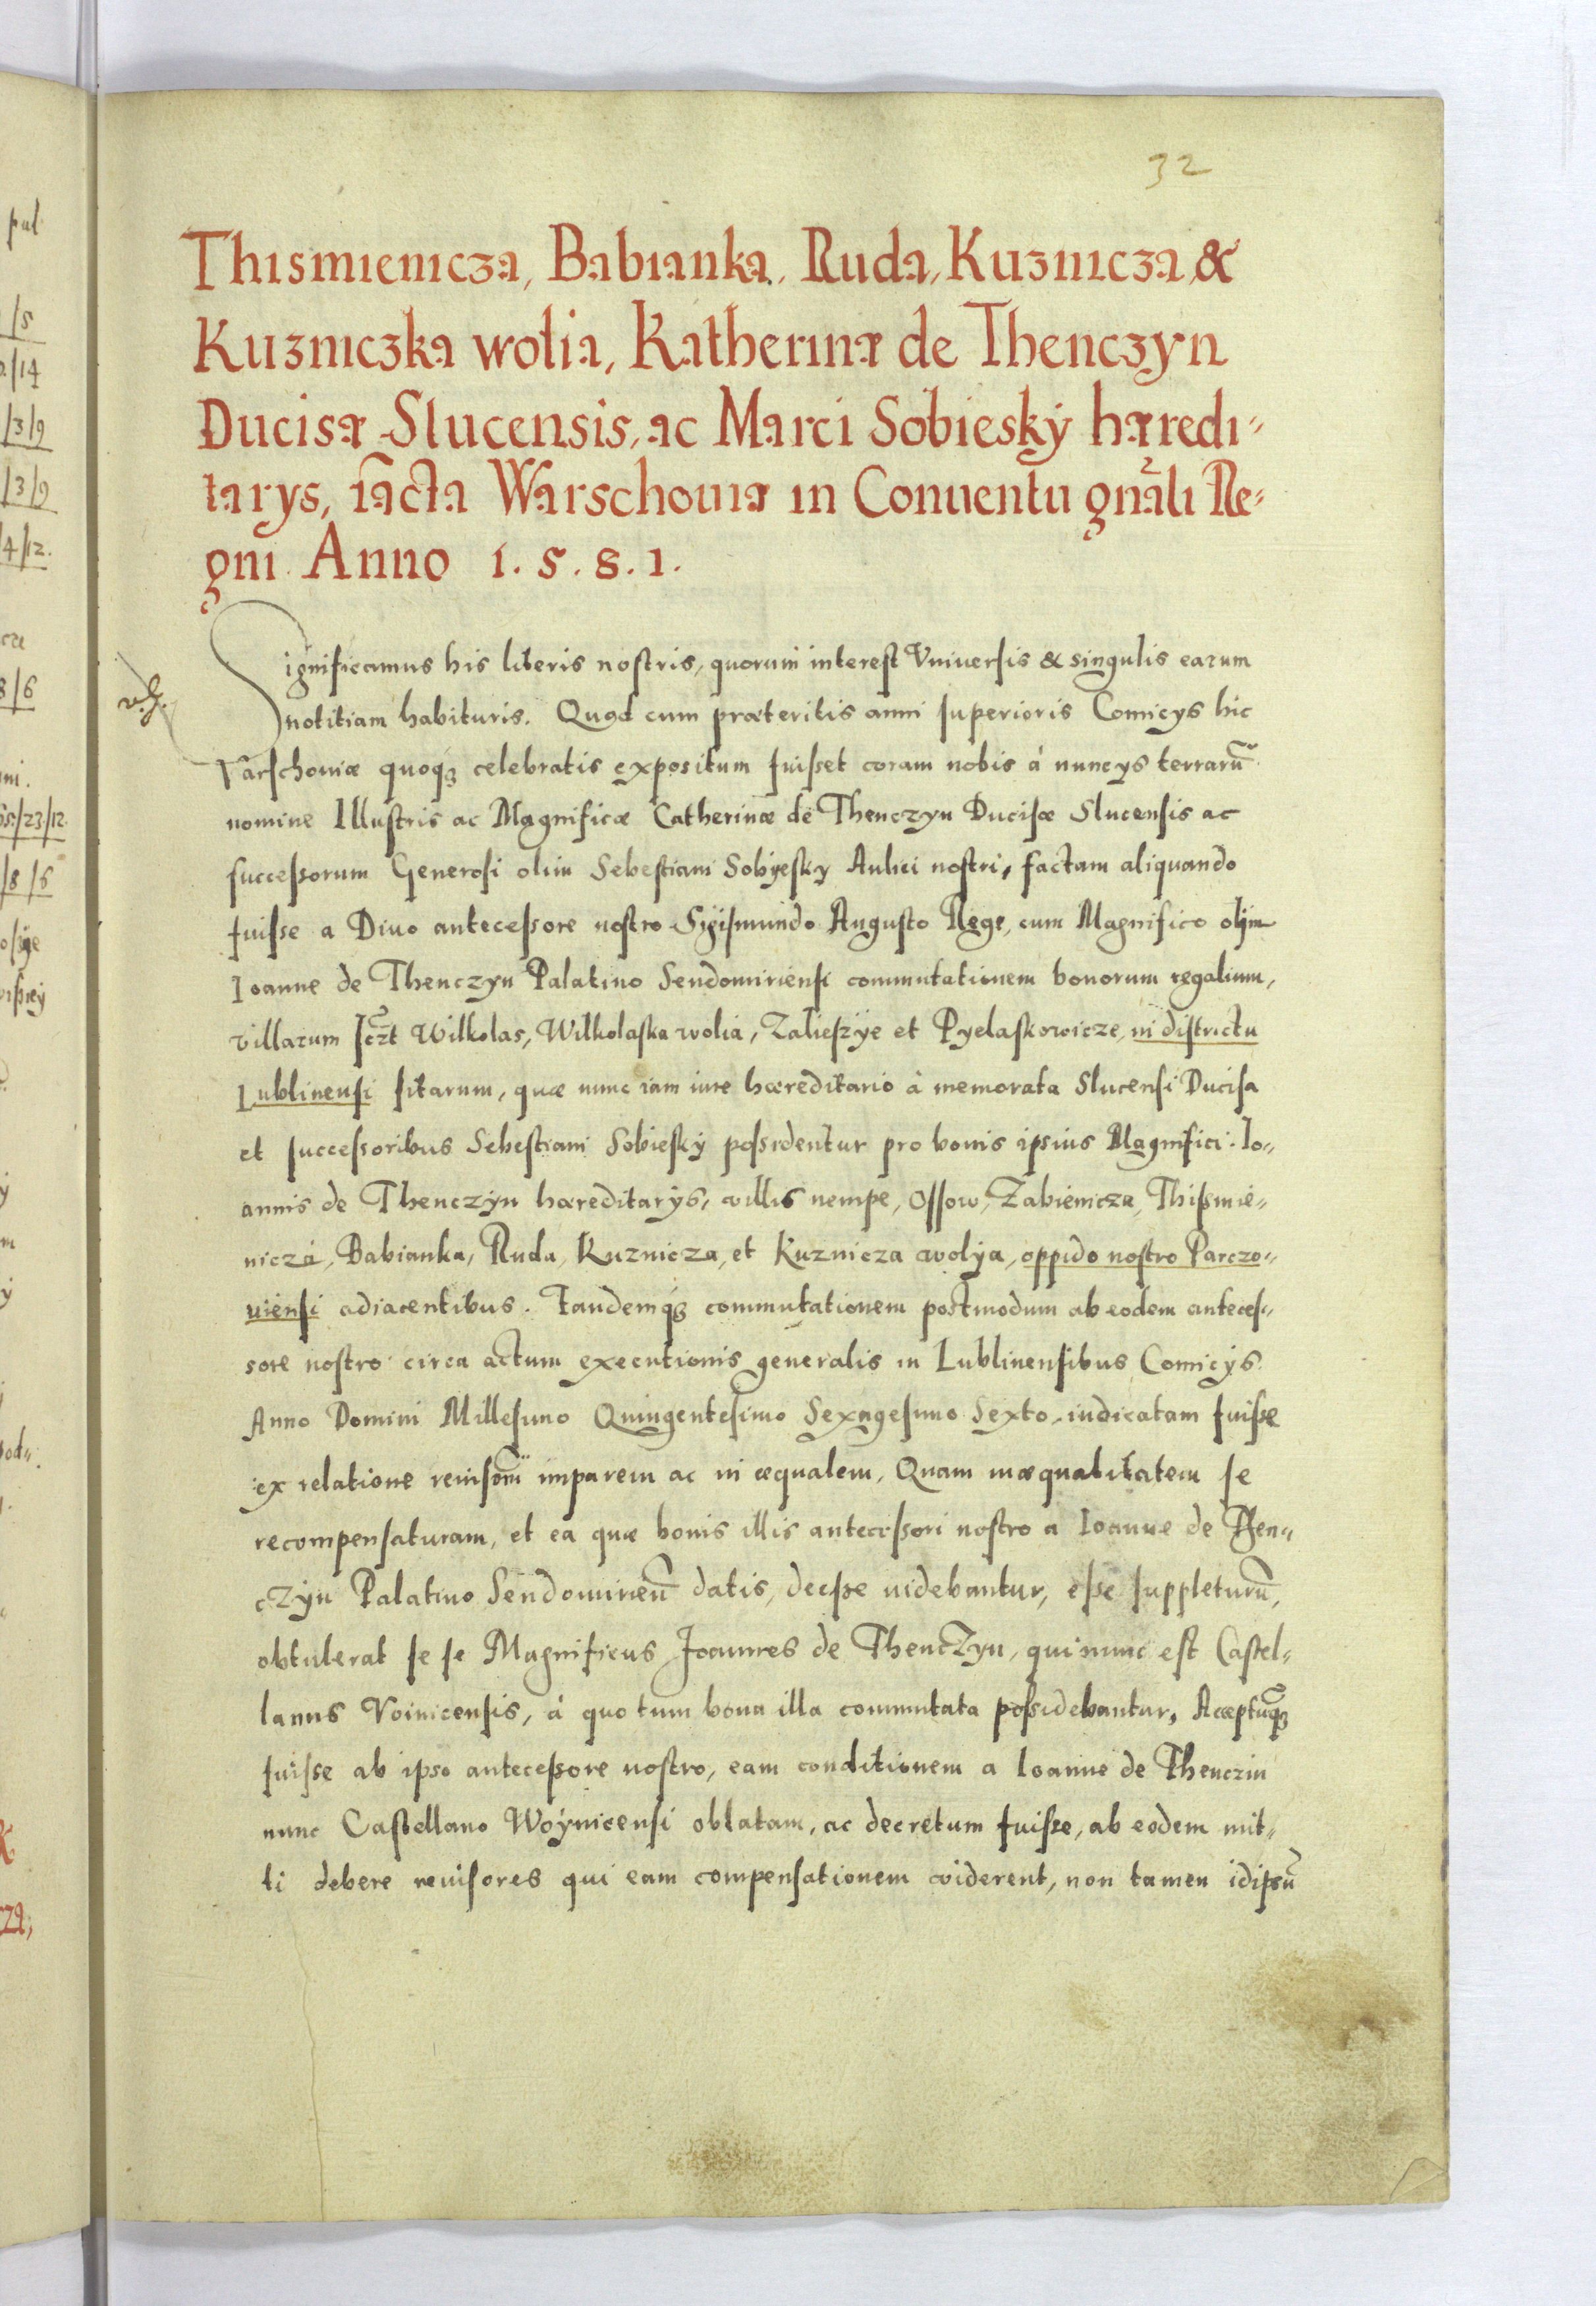 32
Thismienicza, Babianka, Ruda, Kuznicza, &
Kuzniczka wolia, Katherinæ de Thenczyn
Ducisæ Slucensis, ac Marci Sobieskÿ hæredi-
tarys, Warschouiæ in Conuentu gñali Re-
gni Anno 1.5.8.1.
Significamus his literis nostris, quorum interest Vniuersis & singulis earum
notitiam habituris. Quod cum præteritis anni superioris Comicys hic
Varschouiæ quoq₃ celebratis expositum fuisset coram nobis à nuncys terrarũ
nomine Illustris ac Magnificæ Catherinæ de Thenczyn Ducisæ Slucensis ac
successorum Generosi olim Sebestiani Sobyesky Aulici nostri, factam aliquando
fuisse a Diuo antecessore nostro Sigismundo Augusto Rege, cum Magnifico olim
Ioanne de Thenczyn Palatino Sendomiriensi commutationem bonorum regalium,
villarum Wilkolas, Wilkolaska wolia, Zalieszÿe et Pyelaskowicze, in districtu
Lublinensi sitarum, quæ nunc iam iure hæreditario à memorata Slucensi Ducisa
et successoribus Sebestiani Sobieskÿ possidentur pro bonis ipsius Magnifici Io-
annis de Thenczÿn hæreditarÿs, villis nempe, Ossow, Zabienicza, Thismie-
nicza, Babianka, Ruda, Kuznicza, et Kuznicza wolÿa, oppido nostro Parczo-
uiensi adiacentibus. Eandemq₃ commutationem postmodum ab eodem anteces-
sore nostro circa actum executionis generalis in Lublinensibus Comicÿs
Anno Domini Millesimo Quingentesimo Sexagesimo Sexto, iudicatam fuisse
ex relatione imparem ac in æqualem, Quam inæqualitatem se
recompensaturam, et ea quæ bonis illis antecessori nostro a Ioanne de Then-
czÿn Palatino datis, deesse uidebantur, esse suppleturũ,
obtulerat se se Magnificus Joannes de Thenczyn, qui nunc est Castel-
lanus Voinicensis, à quo tum bona illa commutata possidebantur, Acceptũq₃
fuisse ab ipso antecessore nostro, eam conditionem a Ioanne de Thenczin
nunc Castellano Woÿnicensi oblatam, ac decretum fuisse, ab eodem mit-
ti debere reuisores qui eam compensationem viderent, non tamen idipsũ